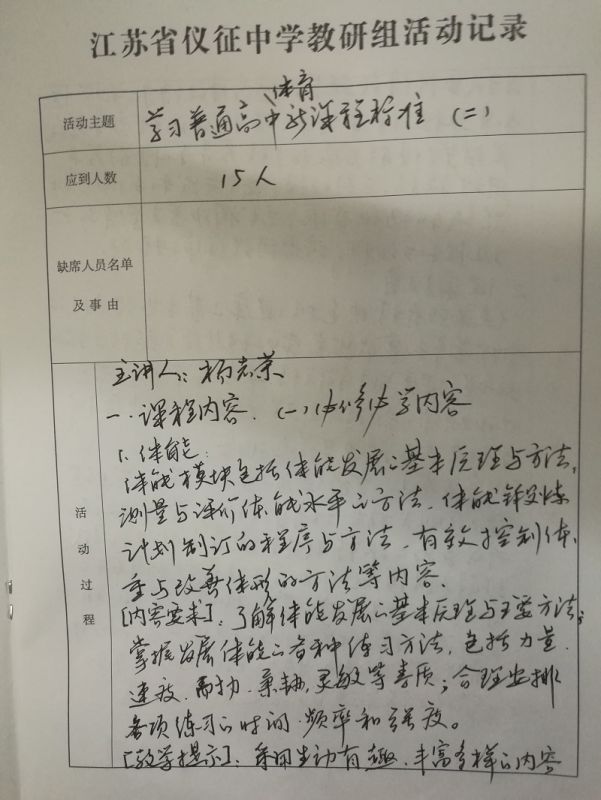 江苏省仪征中学教研组活动记录
活动主题
学习普通高中体育新课程标准（二）
应到人数
15人
缺席人员名单
及事由
活动过程
主讲人：杨志荣
一.课程内容.（一）必修必学内容
1.体能：
体能模块包括体能发展之基本原理与方法，
测量与评价体能水平之方法，体能锻炼
计划制订的程序与方法，有效控制体
重与改善体形的方法等内容.
[内容要求]：了解体能发展之基本原理与主要方法；
掌握发展体能之各种练习方法，包括力量.
速度.耐力.柔韧.灵敏等素质；合理安排
各项练习之时间.频率和强度。
[教学提示]：采用生动有趣、丰富多样之内容